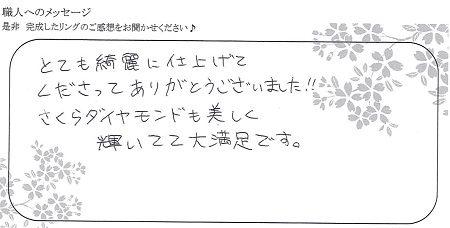 職人へのメッセージ
是非 完成したリングのご感想をお聞かせください♪
とても綺麗に仕上げて
くださってありがとうございました!!
さくらダイヤモンドも美しく
輝いてて大満足です。